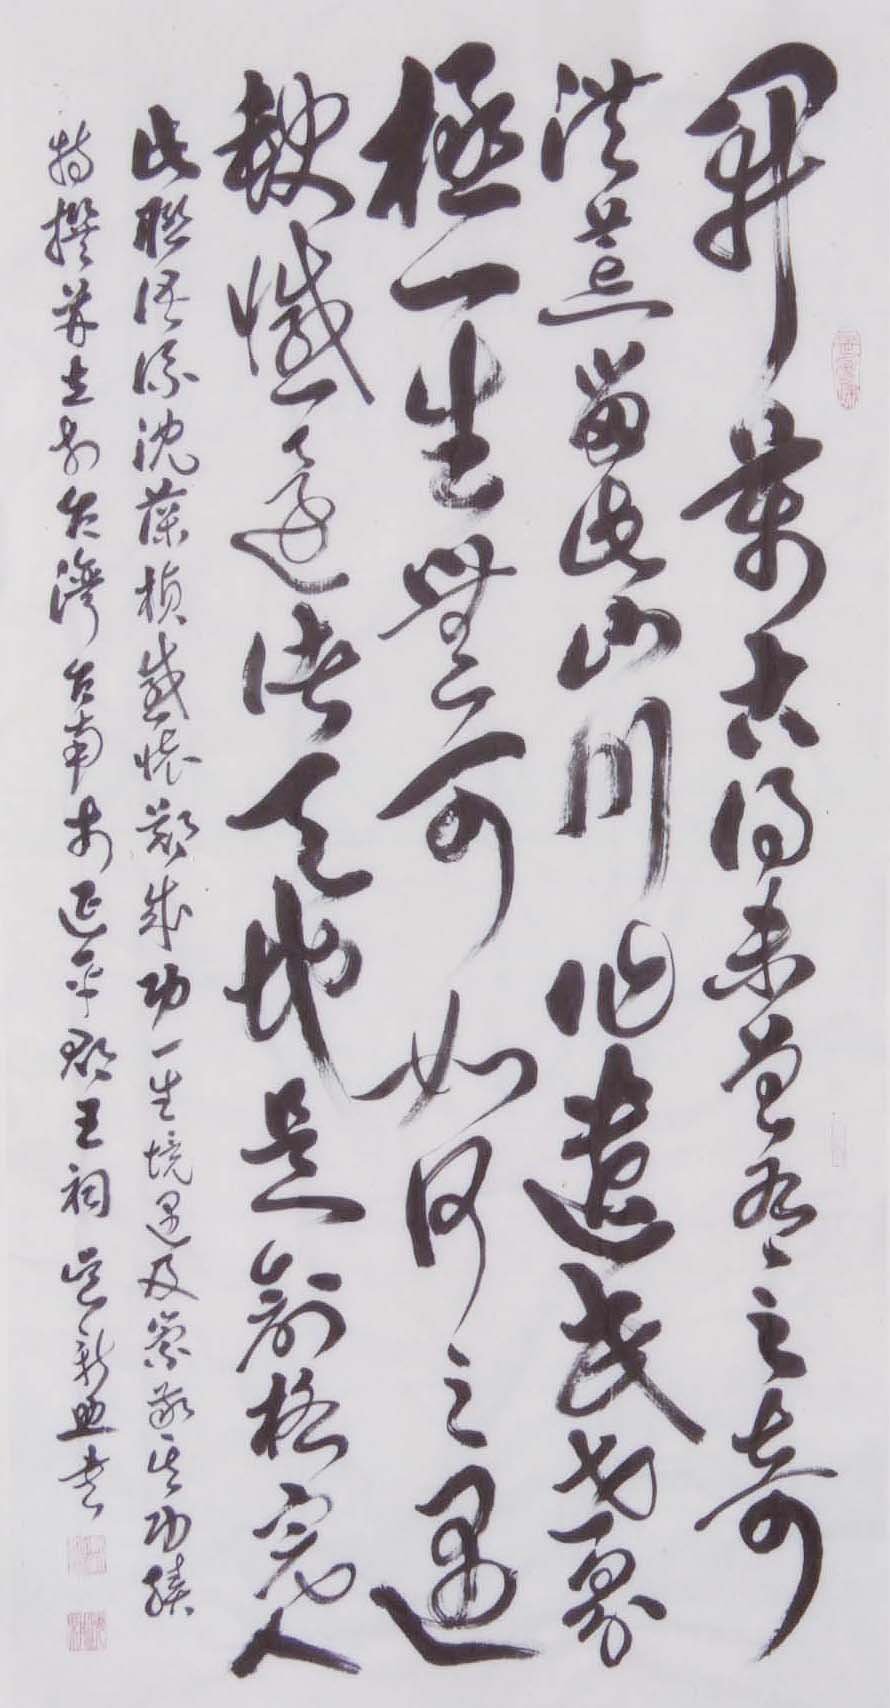 開萬古得未曾有之奇
洪荒留此山川作遺民世界
極一生無可如何之遇
缺憾還諸天地是創格完人
此聯係沈葆楨感懷鄭成功一生境遇及崇敬其功績
特撰並立於台灣台南市延平郡王祠 吳新書